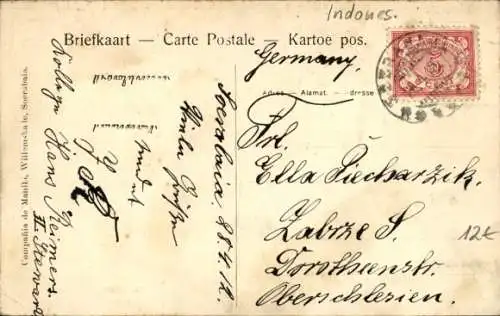 Indones.
Briefkaart — Carte Postale — Kartoe pos.
Germany.
Adres — Alamat. — Adresse
Soerabaia 28.4.12.
Viele Grüße
sendet
Kollege Hans Reimers.
II. Steward
Frl.
Ella Piecharzik.
Zabrze S.
Dorotheenstr.
Oberschlesien.
12€
Compañia de Manila, Willemskade, Soerabaia.